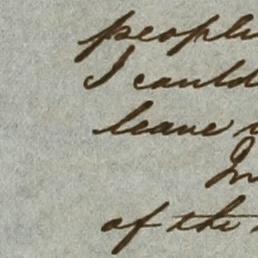 people
I could
leave
In
of the